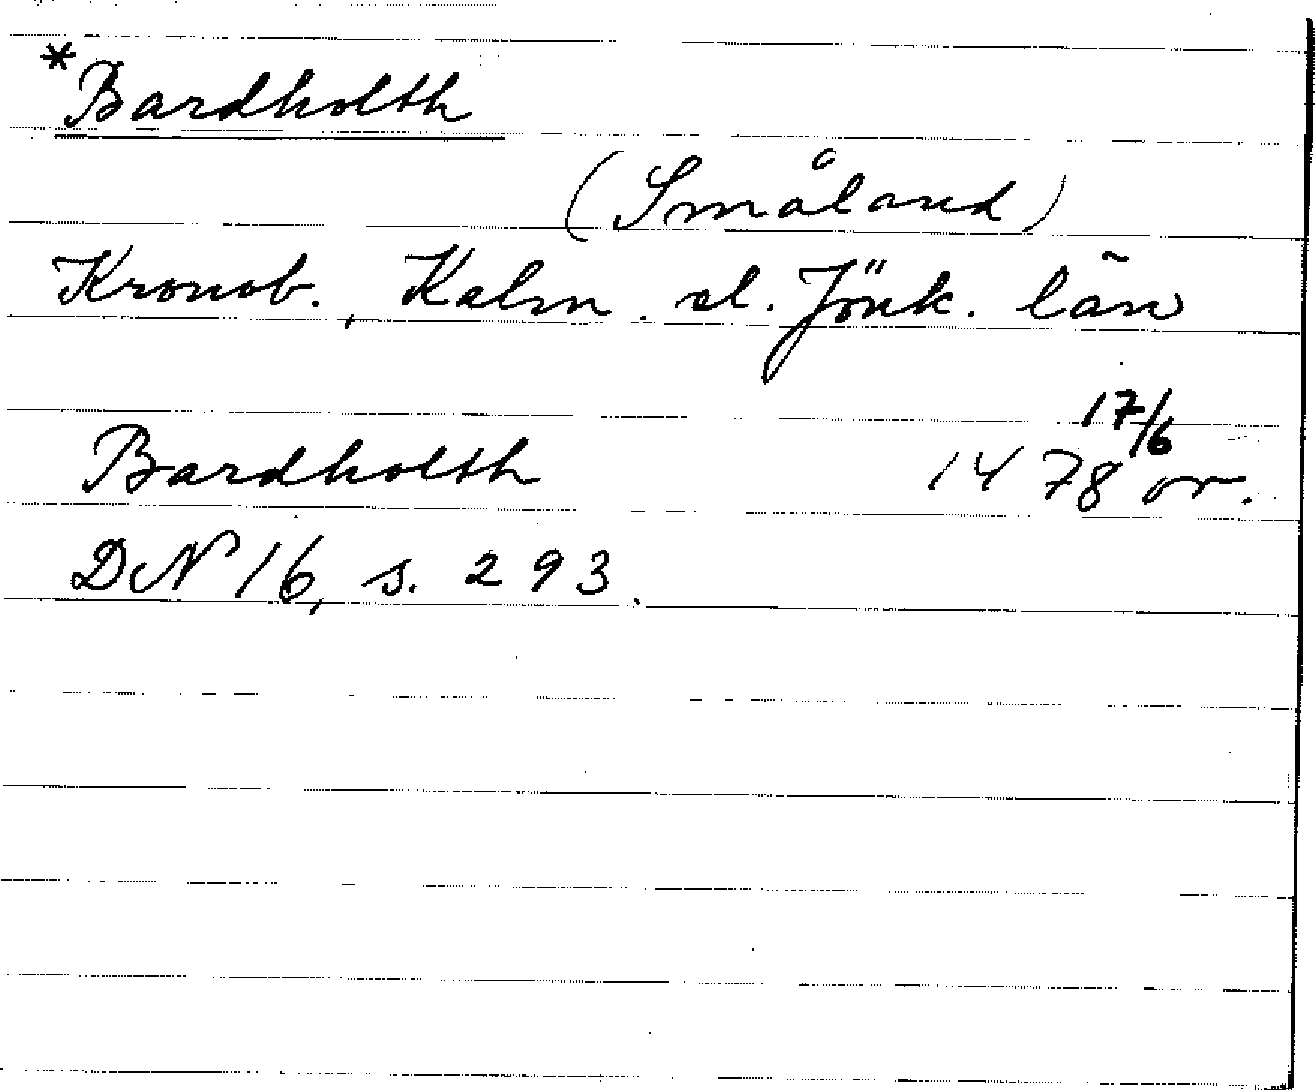 *Bardholth
(Småland)
Kronob., Kalm. el. Jönk. län
Bardholth 1478 17/6 or.
DN 16, s. 293.